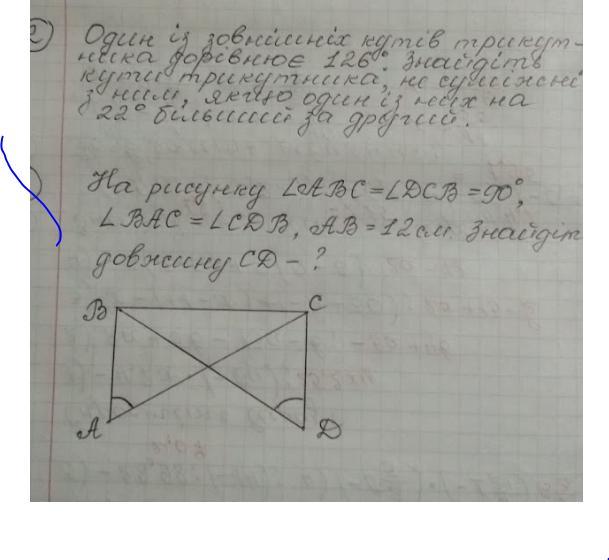 2) Один із зовнішніх кутів трикут-
ника дорівнює 126°. Знайдіть
кути трикутника, не суміжні
з ним, якщо один із них на
22° більший за другий.
На рисунку ∠ABC = ∠DCB = 90°,
∠BAC = ∠CDB, AB = 12 см. Знайдіт
довжину CD - ?
B C
A D